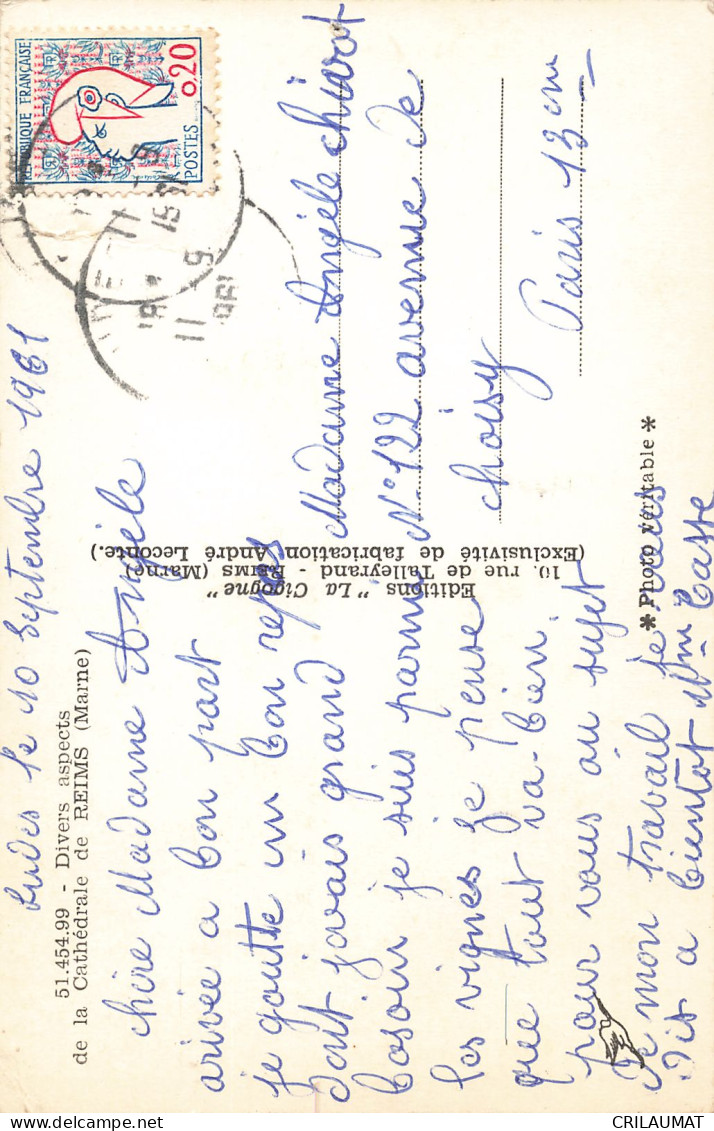 51.454.99 - Divers aspects
de la Cathédrale de REIMS (Marne)
Ludes le 10 Septembre 1961
chère Madame Angèle
arivée a bon part
je goutte un bon repos
dont javais grand
besoin je suis parmie
les vignes je pense
que tout va-bien.
pour vous au sujet
de mon travail je vous
dis a bientot Mme Casse
Editions " La Cigogne "
10, rue de Talleyrand - REIMS (Marne)
(Exclusivité de fabrication, André Leconte.)
* Photo véritable *
RÉPUBLIQUE FRANÇAISE
0,20
POSTES
11 - 9
Madame Angèle Chivot
N° 122 avenue de
choisy
Paris 13 em
delcampe.net
CRILAUMAT